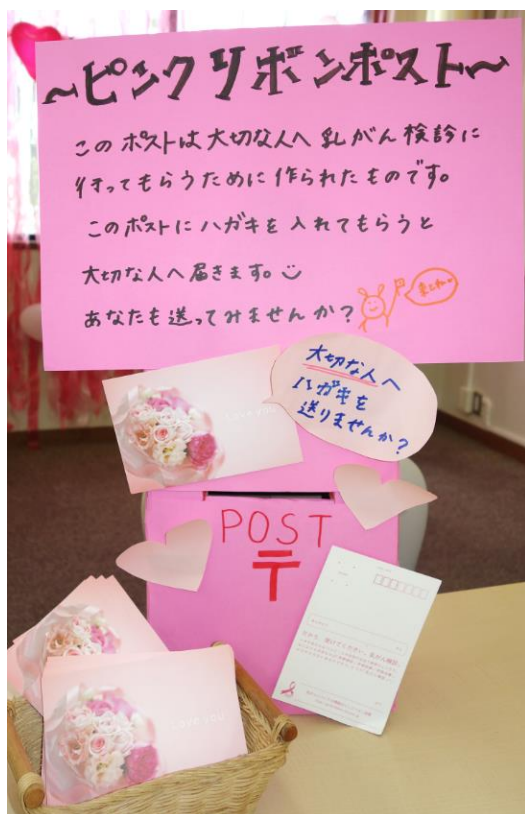 ～ピンクリボンポスト～
このポストは大切な人へ乳がん検診に
行ってもらうために作られたものです。
このポストにハガキを入れてもらうと
大切な人へ届きます。
あなたも送ってみませんか？
大切な人へ
ハガキを
送りませんか？
Love you
POST
〒
Love you